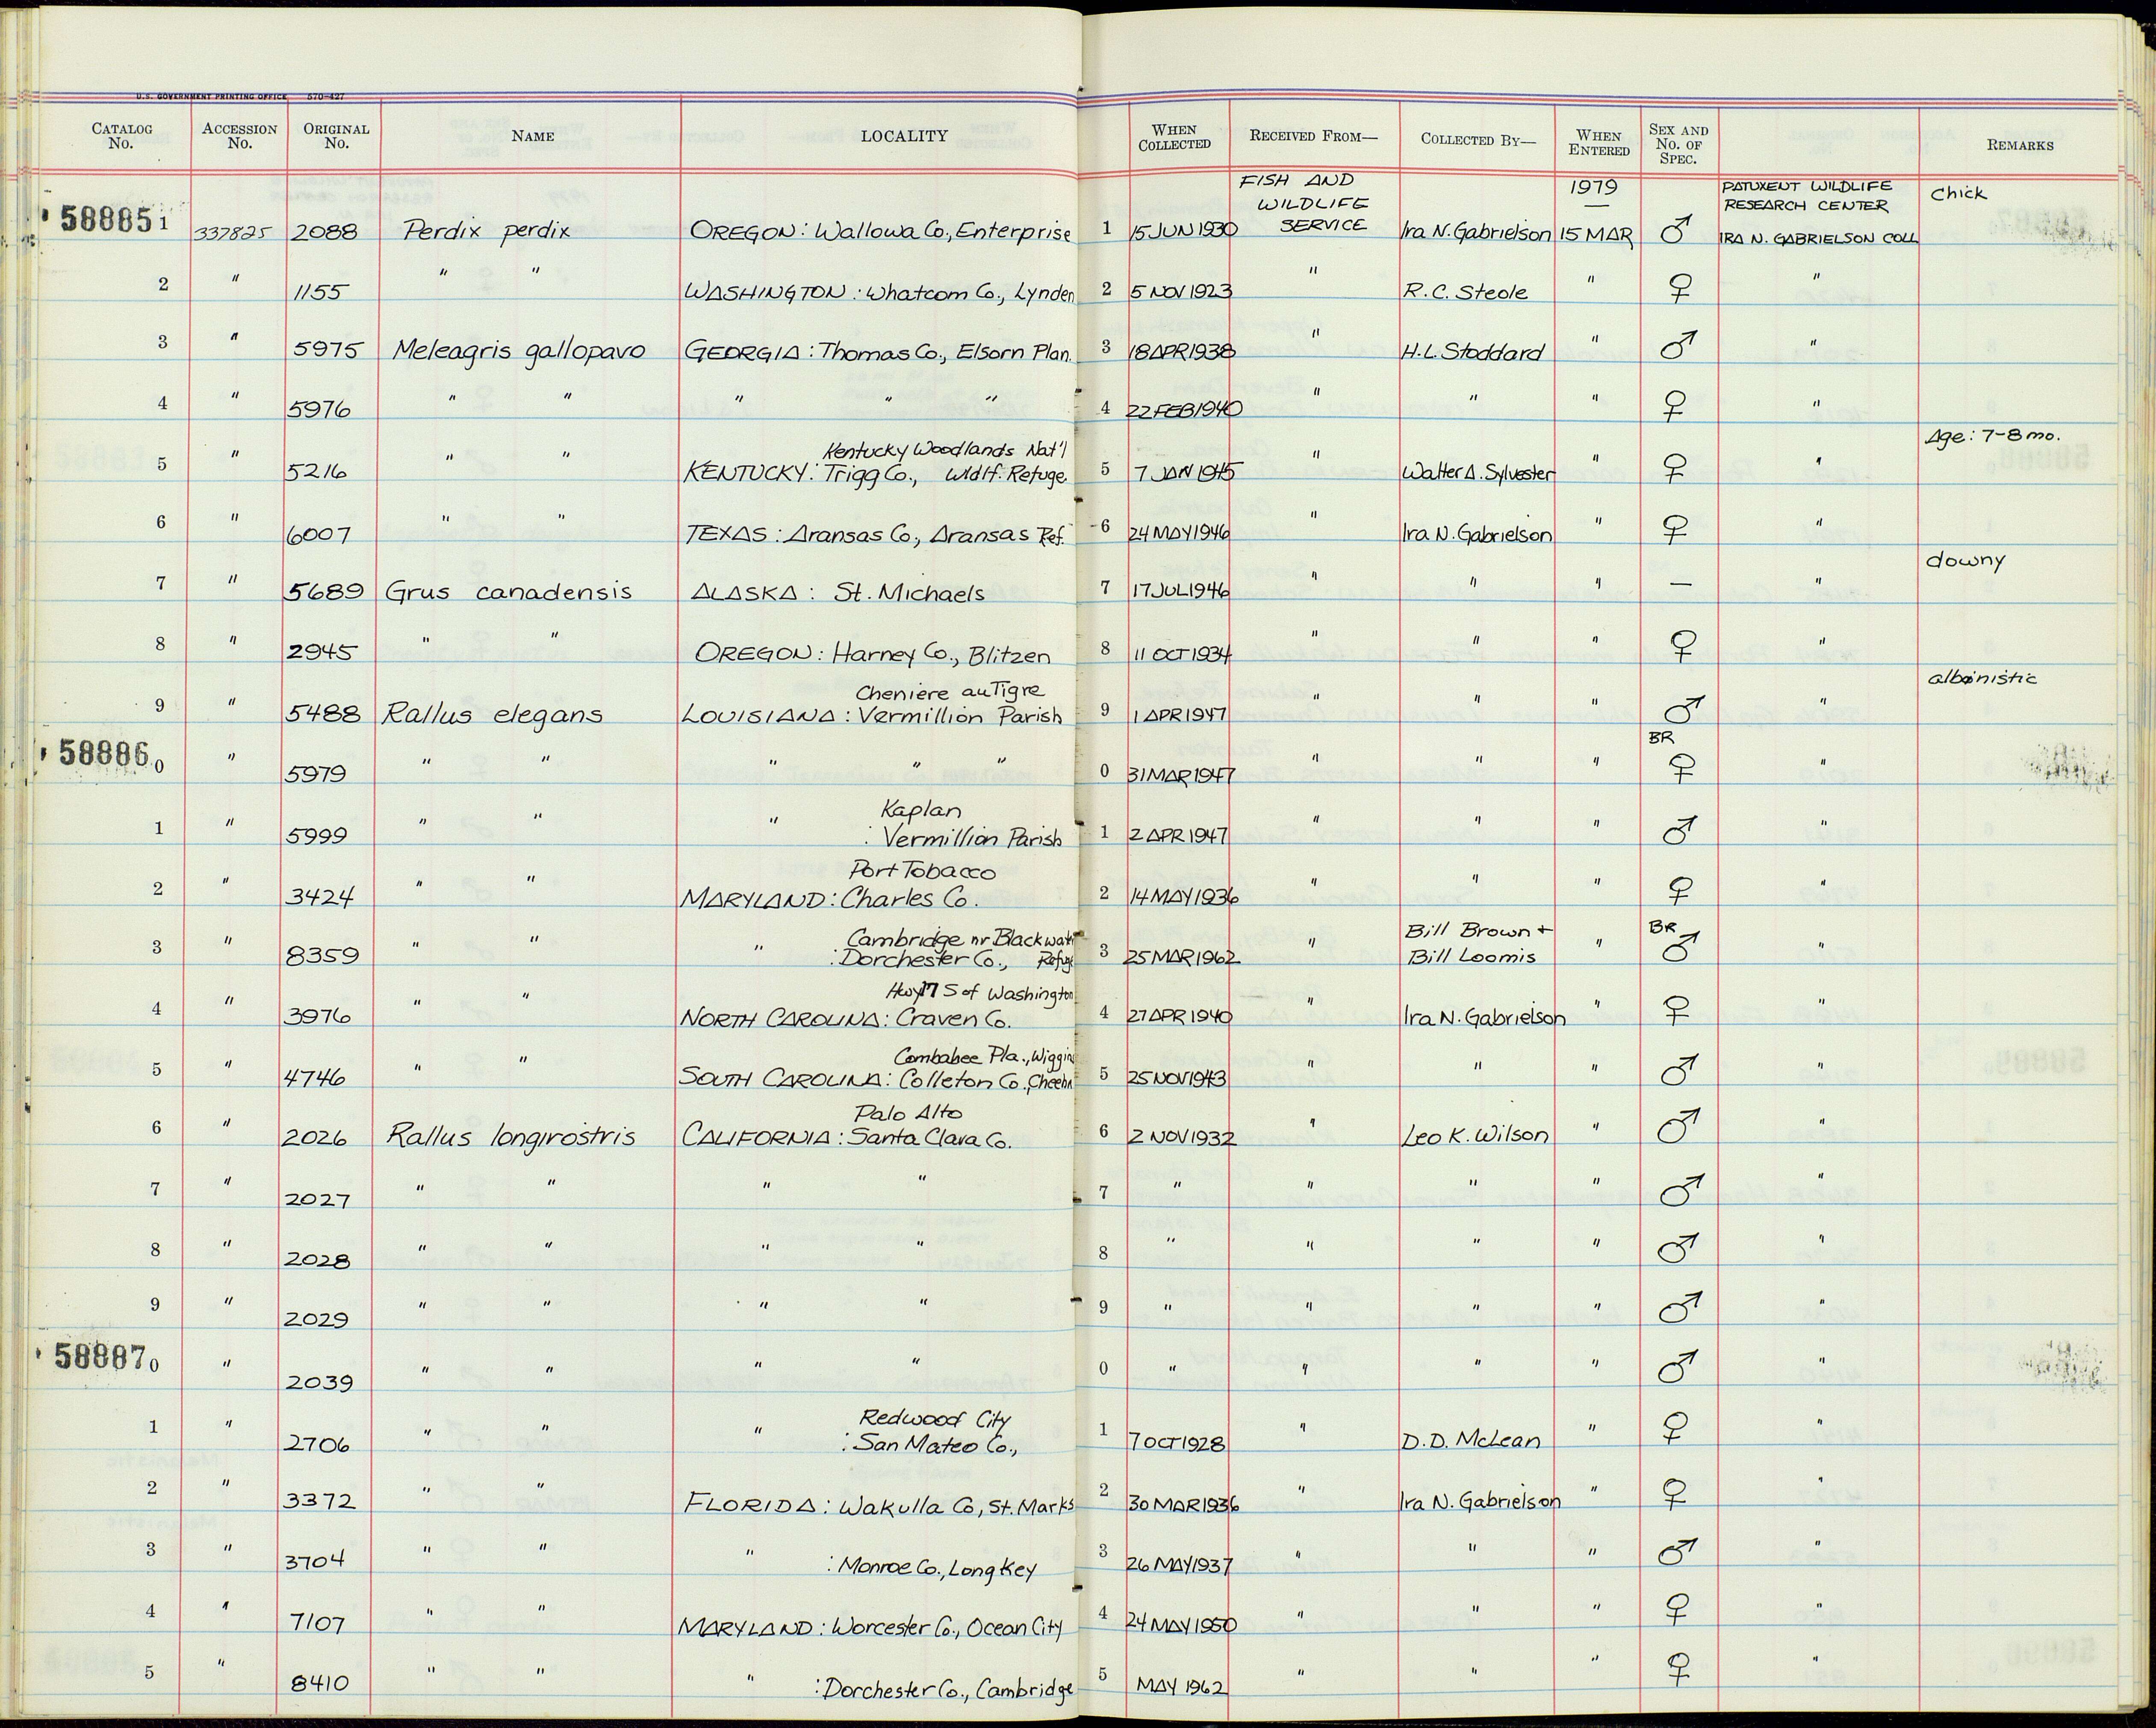 U.S. GOVERNMENT PRINTING OFFICE 570-427
CATALOG No. ACCESSION No. ORIGINAL No. NAME LOCALITY WHEN COLLECTED RECEIVED FROM— COLLECTED BY— WHEN ENTERED SEX AND No. OF SPEC. REMARKS
58885 1 337825 2088 Perdix perdix OREGON: Wallowa Co., Enterprise 1 15 JUN 1930 FISH AND WILDLIFE SERVICE Ira N. Gabrielson 1979 — 15 MAR ♂ PATUXENT WILDLIFE RESEARCH CENTER IRA N. GABRIELSON COLL Chick
2 " 1155 " " WASHINGTON: Whatcom Co., Lynden 2 5 NOV 1923 " R.C. Steole " ♀ "
3 " 5975 Meleagris gallopavo GEORGIA: Thomas Co., Elsorn Plan. 3 18 APR 1938 " H.L. Stoddard " ♂ "
4 " 5976 " " " " " 4 22 FEB 1940 " " " ♀ "
5 " 5216 " " KENTUCKY: Trigg Co., Kentucky Woodlands Nat'l Wldlf. Refuge 5 7 JAN 1945 " Walter A. Sylvester " ♀ " Age: 7-8 mo.
6 " 6007 " " TEXAS: Aransas Co., Aransas Ref. 6 24 MAY 1946 " Ira N. Gabrielson " ♀ "
7 " 5689 Grus canadensis ALASKA: St. Michaels 7 17 JUL 1946 " " " — " downy
8 " 2945 " " OREGON: Harney Co., Blitzen 8 11 OCT 1934 " " " ♀ "
9 " 5488 Rallus elegans LOUISIANA: Cheniere au Tigre Vermillion Parish 9 1 APR 1947 " " " ♂ " albinistic
58886 0 " 5979 " " " " " 0 31 MAR 1947 " " " BR ♀ "
1 " 5999 " " " : Kaplan Vermillion Parish 1 2 APR 1947 " " " ♂ "
2 " 3424 " " MARYLAND: Port Tobacco Charles Co. 2 14 MAY 1936 " " " ♀ "
3 " 8359 " " " : Cambridge nr Blackwatr Dorchester Co., Refuge 3 25 MAR 1962 " Bill Brown + Bill Loomis " BR ♂ "
4 " 3976 " " NORTH CAROLINA: Hwy 17 S of Washington Craven Co. 4 27 APR 1940 " Ira N. Gabrielson " ♀ "
5 " 4746 " " SOUTH CAROLINA: Combahee Pla., Wiggins Colleton Co., 5 25 NOV 1943 " " " ♂ "
6 " 2026 Rallus longirostris CALIFORNIA: Palo Alto Santa Clara Co. 6 2 NOV 1932 " Leo K. Wilson " ♂ "
7 " 2027 " " " " 7 " " " " ♂ "
8 " 2028 " " " " 8 " " " " ♂ "
9 " 2029 " " " " 9 " " " " ♂ "
58887 0 " 2039 " " " " 0 " " " " ♂ "
1 " 2706 " " " : Redwood City San Mateo Co., 1 7 OCT 1928 " D.D. McLean " ♀ "
2 " 3372 " " FLORIDA: Wakulla Co., St. Marks 2 30 MAR 1936 " Ira N. Gabrielson " ♀ "
3 " 3704 " " " : Monroe Co., Long Key 3 26 MAY 1937 " " " ♂ "
4 " 7107 " " MARYLAND: Worcester Co., Ocean City 4 24 MAY 1950 " " " ♀ "
5 " 8410 " " " : Dorchester Co., Cambridge 5 MAY 1962 " " " ♀ "